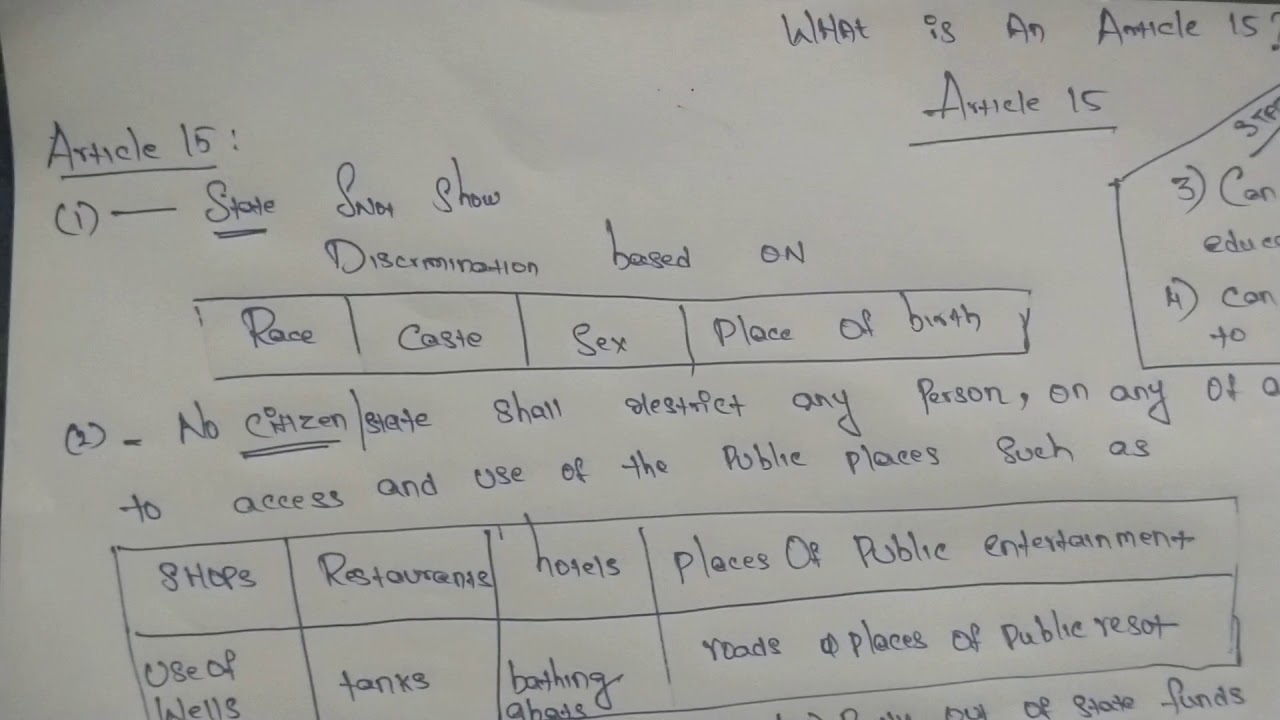 WHAt is An Article 15?
Article 15
Article 15:
(1) — State Snot Show
Discrmination based ON
Race Caste Sex Place Of birth
3) Can
educ
4) Can
to
(2) - No Citizen/state shall restrict any Person, on any of a
to access and use of the Public places such as
SHOPS Restaurents hotels Places Of Public entertainment
Use of tanks bathing roads & places of Public resot
Wells ghats
out of state funds